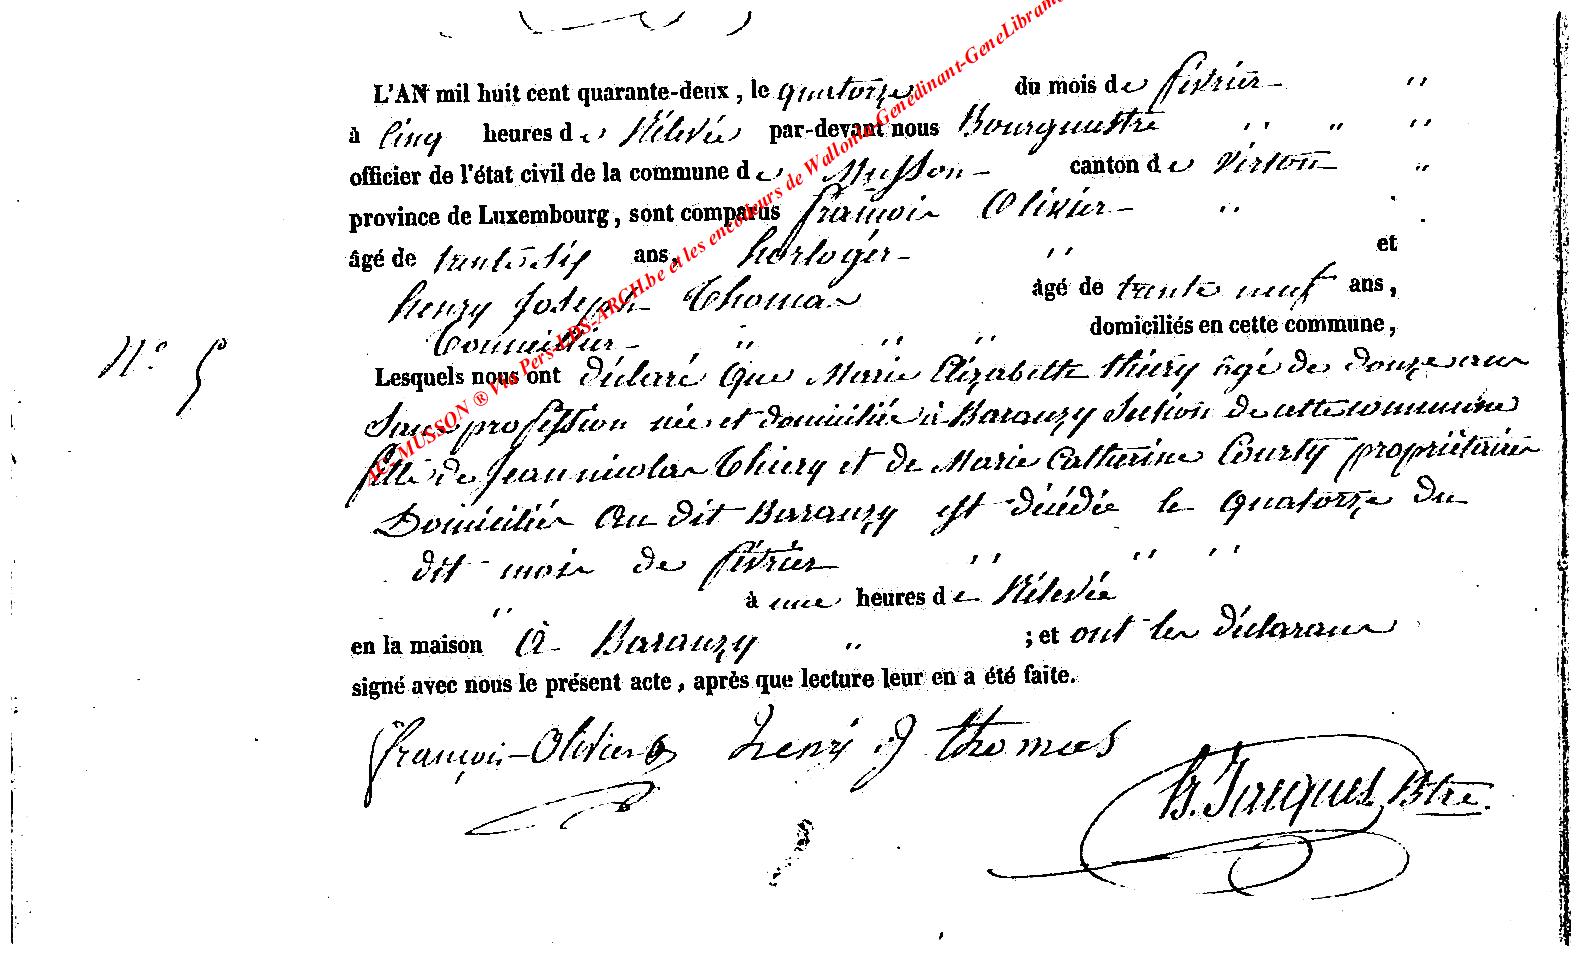 L'AN mil huit cent quarante-deux, le quatorze du mois de février "
à cinq heures de Rélevée par-devant nous Bourguestre " " "
officier de l'état civil de la commune de Musson canton de Virton "
province de Luxembourg, sont comparus françois Olivier "
âgé de trente six ans, horloger " et
henry Joseph Thomas âgé de trente neuf ans,
" " " domiciliés en cette commune,
N° 5
Lesquels nous ont déclaré Que Marie Elizabette thiéry âgé de douze ans
Sans profession née et domiciliée à Baranzy Section de cette commune
fille de Jean nicolas Thiery et de Marie Catherine Courty propriétaires
Domiciliés Au dit Baranzy est décédée le quatorze du
dit mois de février " " "
" à une heures de Rélevée
en la maison à Baranzy " ; et ont les déclarans
signé avec nous le présent acte, après que lecture leur en a été faite.
françois-Olivier henri J thomas
B. Jacques Bstre.
IC- MUSSON ® Via Pers-LDS-ARCH.be et les encodeurs de Wallonia-Genedinant-GeneLibram